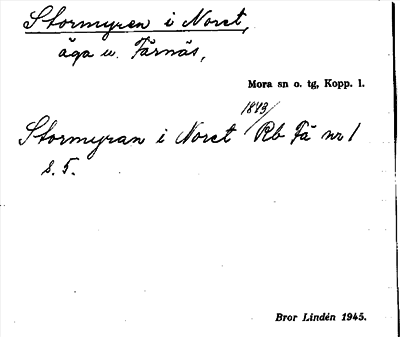 Stormyren i Noret,
äga u. Färnäs,
Mora sn o. tg, Kopp. l.
Stormyran i Noret 1843/ Rb Fä nr 1
s. 5.
Bror Lindén 1945.